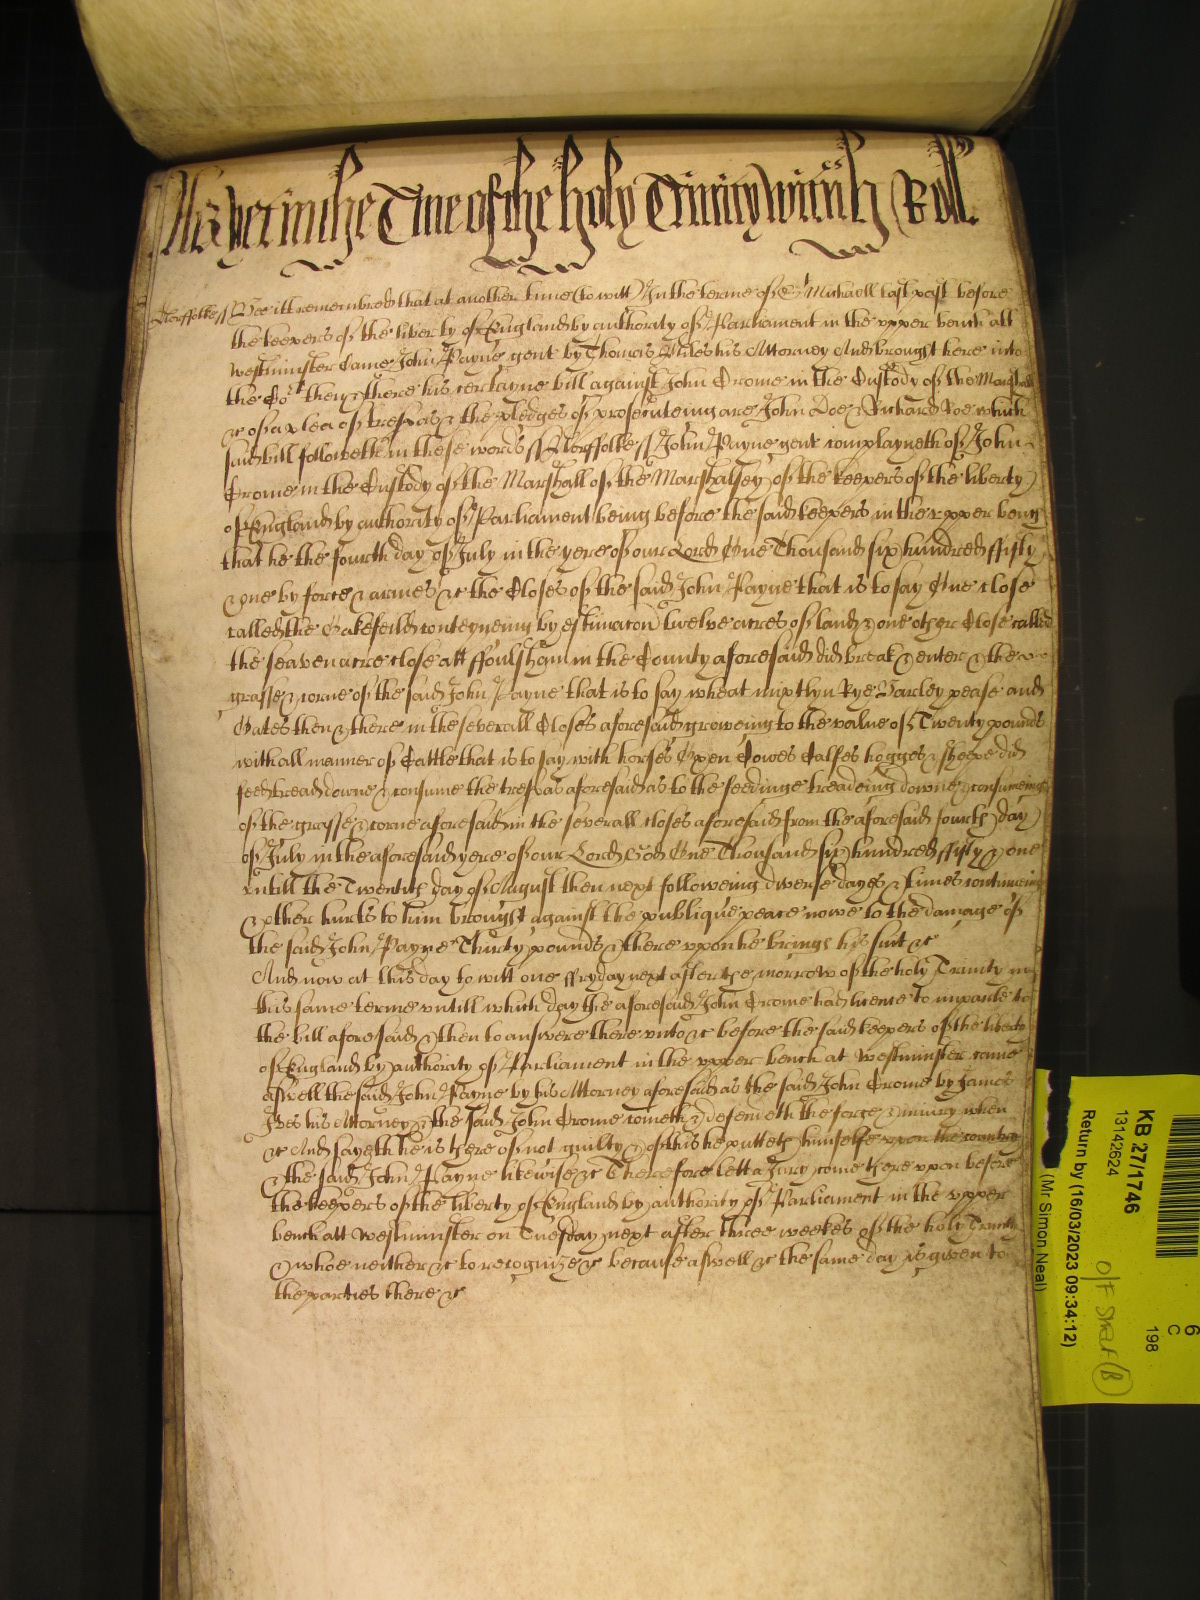 As yet in the Time of the holy Trinity Roll
Norffolke // Bee itt remembred that at another time (to witt) In the terme of St Michaell last past before
the keepers of the liberty of England by authority of Parliament in the upper bench att
Westminster Came John Payne gent by Thomas his Attorney And brought here into
the Cort then & there his certayne bill against John Crome in the Custody of the Marshall
&c of a plea of trespas & the pledges of prosecuteing are John Doe & Richard Roe which
said bill followeth in these words // Norffolke // John Payne gent complayneth of John
Crome in the Custody of the Marshall of the Marshalsey of the keepers of the liberty
of England by authority of Parliament being before the said keepers in the upper bench
that he the fourth day of July in the yere of our Lord One Thousand six hundred ffifty
& one by force & armes &c the Closes of the said John Payne that is to say One close
called the Oakefeild conteyneing by estimacon twelve acres of land & one other Close called
the seaven acre close att ffoulsham in the County aforesaid did break & enter & the
grasse & corne of the said John Payne that is to say wheat mixtlyn Rye Barley pease and
Oates then & there in the severall Closes aforesaid groweing to the value of Twenty pounds
with all manner of Cattle that is to say with horses Oxen Cowes Calfes hogges & sheepe did
feed tread downe & consume the trespas aforesaid as to the feedinge treadeing downe & consumeing
of the grasse & corne aforesaid in the severall closes aforesaid from the aforesaid fourth day
of July in the aforesaid yere of our Lord God One Thousand six hundred ffifty & one
untill the Twentith day of August then next followeing diverse dayes & times continueing
& other hurts to him brought against the publique peace nowe to the damage of
the said John Payne Thirty pounds & there upon he brings his suit &c
And now at this day to witt one ffryday next after the morrow of the holy Trinity in
this same terme untill which day the aforesaid John Crome had licence to imparle to
the bill aforesaid & then to answere there unto &c before the said keepers of the liberty
of England by authority of Parliament in the upper bench at Westminster came
aswell the said John Payne by his Attorney aforesaid as the said John Crome by James
his Attorney & the said John Crome cometh & defendeth the force & iniury when
&c And sayeth he is there of not guilty & of this he putteth himselfe upon the country
& the said John Payne likewise &c Therefore lett a Jury come there upon before
the keepers of the liberty of England by authority of Parliament in the upper
bench att Westminster on Tuesday next after three weekes of the holy Trinity
& whoe neither &c to recognize &c because aswell &c the same day is given to
the parties there &c
KB 27/1746
13142624
Return by (16/03/2023 09:34:12)
(Mr Simon Neal)
6
C
198